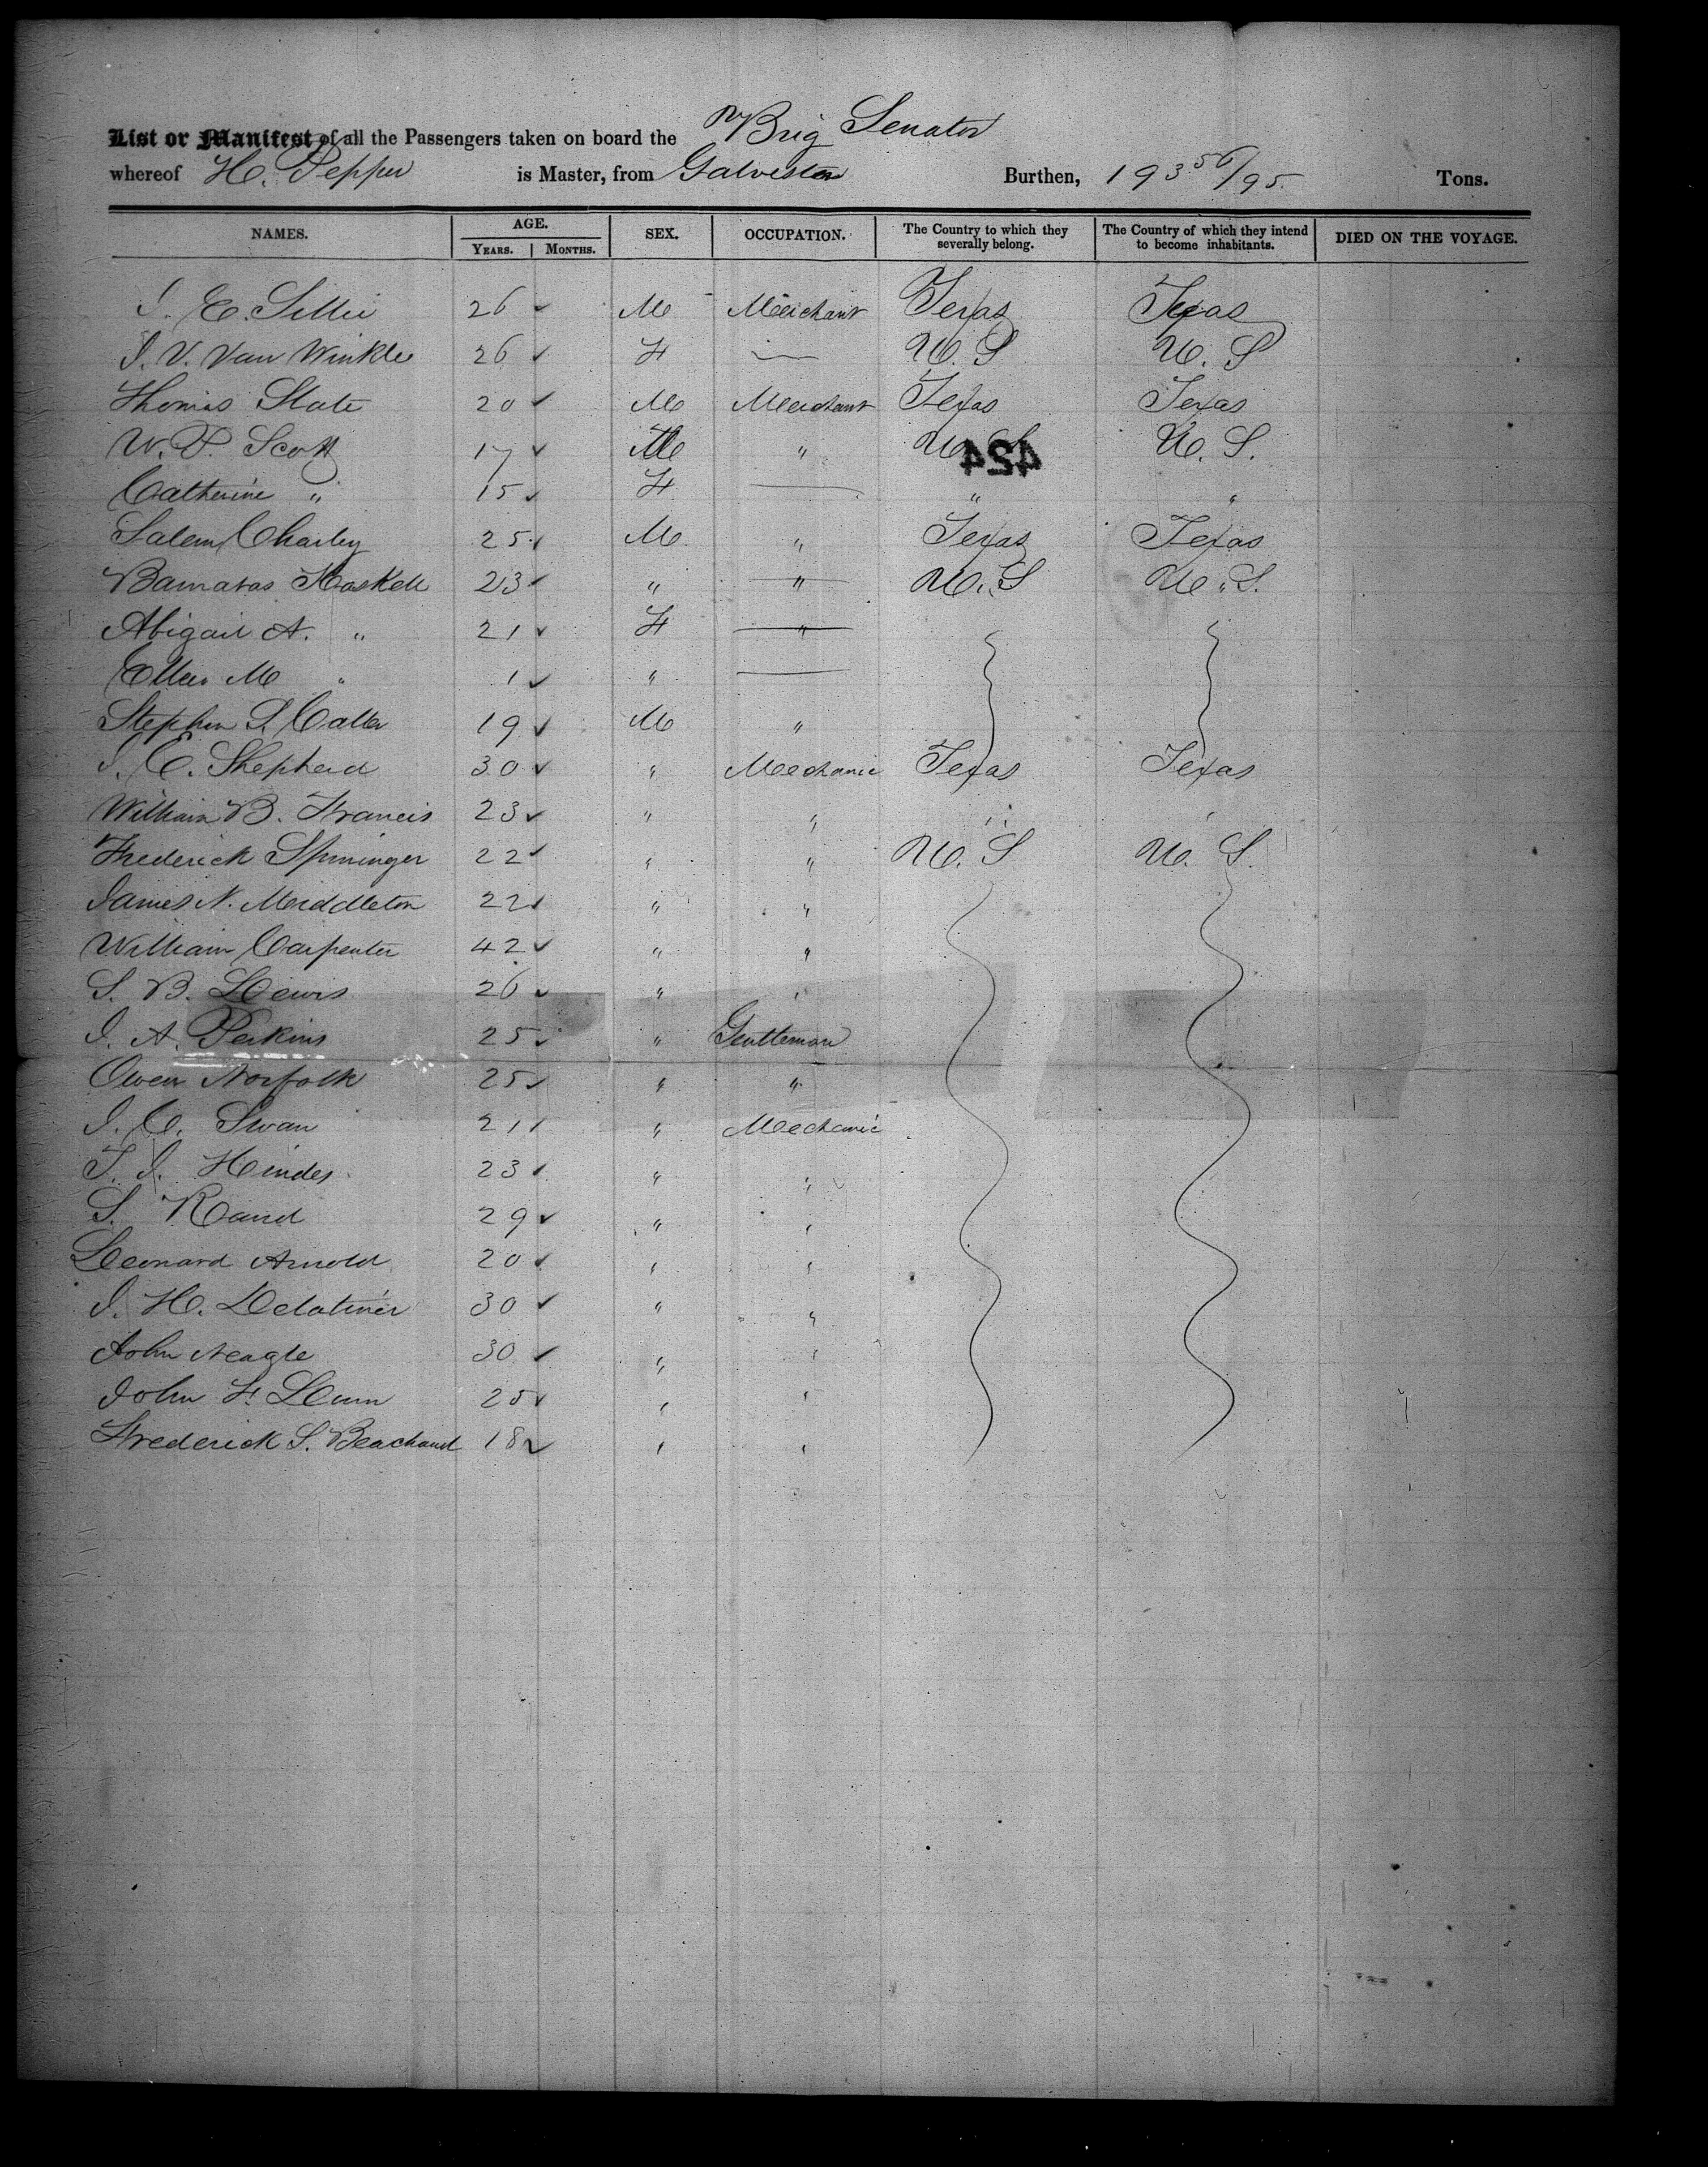 List or Manifest of all the Passengers taken on board the Brig Senator
whereof H. Pepper is Master, from Galveston Burthen, 193 56/95 Tons.
NAMES. AGE. YEARS. MONTHS. SEX. OCCUPATION. The Country to which they severally belong. The Country of which they intend to become inhabitants. DIED ON THE VOYAGE.
26 M Merchant Texas Texas
J. V. Van Winkle 26 F — U. S U. S
Thomas Slate 20 M Merchant Texas Texas
W. P. Scott 17 M " U. S U. S.
424
Catherine " 15 F — " "
Salem Charley 25 M " Texas Texas
Barnabas Haskell 23 " " U. S U. S.
Abigail A. " 21 F "
Ellen M " 1 " —
Stephen P. 19 M "
J. C. Shepherd 30 " Mechanic Texas Texas
William B. Francis 23 " " " "
Frederick 22 " " U. S U. S.
James N. Middleton 22 " "
William Carpenter 42 " "
S. B. Lewis 26 " "
J. A. Perkins 25 " Gentleman
Owen Norfolk 25 " "
J. C. Swan 21 " Mechanic
T. J. Hindes 23 " "
S. Rand 29 " "
Leonard Arnold 20 " "
J. H. 30 " "
John Neagle 30 " "
John F. 25 " "
Frederick S. 18 " "